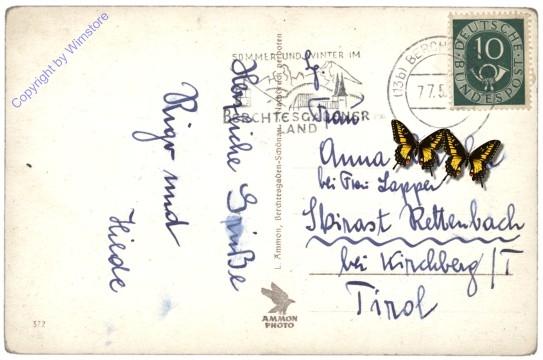 Copyright by Wimstore
Herzliche Grüße
Rigo und
Hilde
372
L. Ammon, Berchtesgaden-Schönau
AMMON
PHOTO
SOMMER UND WINTER IM
BERCHTESGADENER
LAND
(13b) BERCH
77.5
10
DEUTSCHE
BUNDESPOST
Frau
Anna
bei Frau Lapper
Rettenbach
bei Kirchberg/T
Tirol